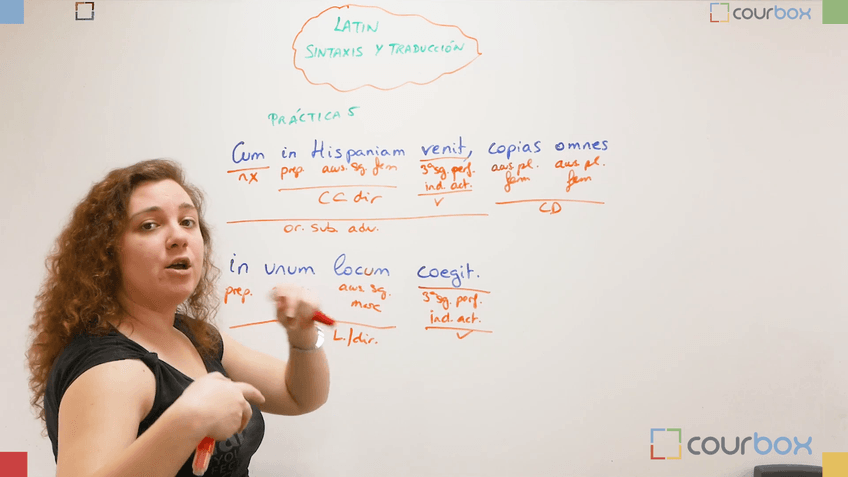 courbox
LATIN
SINTAXIS Y TRADUCCIÓN
PRÁCTICA 5
Cum in Hispaniam venit, copias omnes
nx prep. acus. sg. fem 3ª sg. perf. acus pl. acus pl.
ind. act. fem fem
CC dir v CD
or. sub. adv.
in unum locum coegit.
prep. acus sg. 3ª sg. perf.
masc ind. act.
L./dir. v
courbox